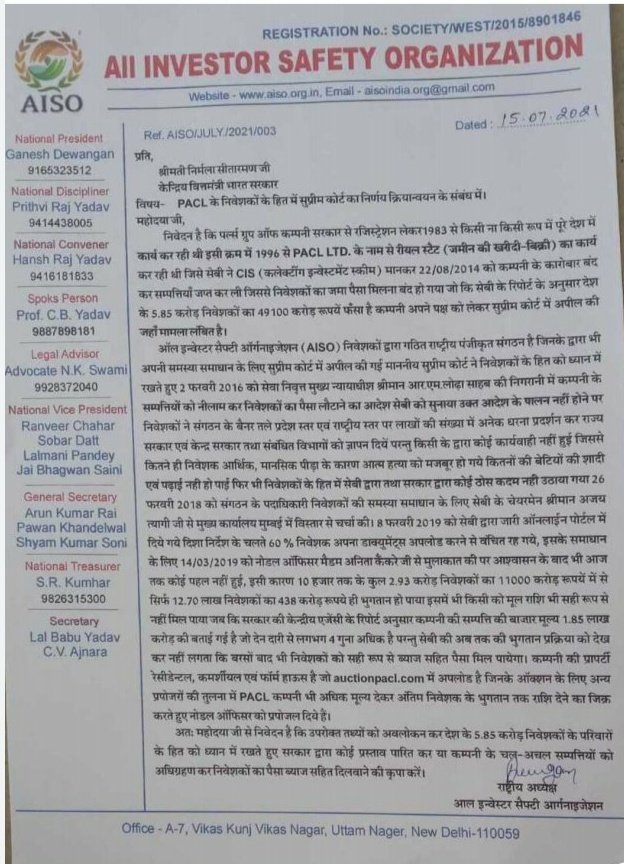 REGISTRATION No.: SOCIETY/WEST/2015/8901846
All INVESTOR SAFETY ORGANIZATION
AISO
Website - www.aiso.org.in, Email - aisoindia.org@gmail.com
Ref. AISO/JULY/2021/003
Dated : 15.07.2021
National President
Ganesh Dewangan
9165323512
National Discipliner
Prithvi Raj Yadav
9414438005
National Convener
Hansh Raj Yadav
9416181833
Spoks Person
Prof. C.B. Yadav
9887898181
Legal Advisor
Advocate N.K. Swami
9928372040
National Vice President
Ranveer Chahar
Sobar Datt
Lalmani Pandey
Jai Bhagwan Saini
General Secretary
Arun Kumar Rai
Pawan Khandelwal
Shyam Kumar Soni
National Treasurer
S.R. Kumhar
9826315300
Secretary
Lal Babu Yadav
C.V. Ajnara
प्रति,
श्रीमती निर्मला सीतारमण जी
केन्द्रिय वित्तमंत्री भारत सरकार
विषय- PACL के निवेशकों के हित में सुप्रीम कोर्ट का निर्णय क्रियान्वयन के संबंध में।
महोदया जी,
निवेदन है कि पर्ल्स ग्रुप ऑफ कम्पनी सरकार से रजिस्ट्रेशन लेकर1983 से किसी ना किसी रूप में पूरे देश में
कार्य कर रही थी इसी क्रम में 1996 से PACL LTD. के नाम से रीयल स्टैट (जमीन की खरीदी-बिक्री) का कार्य
कर रही थी जिसे सेबी ने CIS (कलेक्टींग इन्वेस्टमेंट स्कीम) मानकर 22/08/2014 को कम्पनी के कारोबार बंद
कर सम्पत्तियाँ जप्त कर ली जिससे निवेशकों का जमा पैसा मिलना बंद हो गया जो कि सेबी के रिपोर्ट के अनुसार देश
के 5.85 करोड़ निवेशकों का 49100 करोड़ रूपयें फँसा है कम्पनी अपने पक्ष को लेकर सुप्रीम कोर्ट में अपील की
जहाँ मामला लंबित है।
ऑल इन्वेस्टर सैफ्टी ऑर्गनाइजेशन (AISO) निवेशकों द्वारा गठित राष्ट्रीय पंजीकृत संगठन है जिनके द्वारा भी
अपनी समस्या समाधान के लिए सुप्रीम कोर्ट में अपील की गई माननीय सुप्रीम कोर्ट ने निवेशकों के हित को ध्यान में
रखते हुए 2 फरवरी 2016 को सेवा निवृत्त मुख्य न्यायाधीश श्रीमान आर.एम.लोढ़ा साहब की निगरानी में कम्पनी के
सम्पत्तियों को नीलाम कर निवेशकों का पैसा लौटाने का आदेश सेबी को सुनाया उक्त आदेश के पालन नहीं होने पर
निवेशकों ने संगठन के बैनर तले प्रदेश स्तर एवं राष्ट्रीय स्तर पर लाखों की संख्या में अनेक धरना प्रदर्शन कर राज्य
सरकार एवं केन्द्र सरकार तथा संबंधित विभागों को ज्ञापन दिये परन्तु किसी के द्वारा कोई कार्यवाही नहीं हुई जिससे
कितने ही निवेशक आर्थिक, मानसिक पीड़ा के कारण आत्म हत्या को मजबूर हो गये कितनों की बेटियों की शादी
एवं पढ़ाई नही हो पाई फिर भी निवेशकों के हित में सेबी द्वारा तथा सरकार द्वारा कोई ठोस कदम नही उठाया गया 26
फरवरी 2018 को संगठन के पदाधिकारी निवेशकों की समस्या समाधान के लिए सेबी के चेयरमेन श्रीमान अजय
त्यागी जी से मुख्य कार्यालय मुम्बई में विस्तार से चर्चा की। 8 फरवरी 2019 को सेबी द्वारा जारी ऑनलाईन पोर्टल में
दिये गये दिशा निर्देश के चलते 60 % निवेशक अपना डाक्युमेंट्स अपलोड करने से वंचित रह गये, इसके समाधान
के लिए 14/03/2019 को नोडल ऑफिसर मैडम अनिता कैंकरे जी से मुलाकात की पर आश्वासन के बाद भी आज
तक कोई पहल नही हुई, इसी कारण 10 हजार तक के कुल 2.93 करोड़ निवेशकों का 11000 करोड़ रूपयें में से
सिर्फ 12.70 लाख निवेशकों का 438 करोड़ रूपये ही भुगतान हो पाया इसमें भी किसी को मूल राशि भी सही रूप से
नहीं मिल पाया जब कि सरकार की केन्द्रीय एजेंसी के रिपोर्ट अनुसार कम्पनी की सम्पत्ति की बाजार मूल्य 1.85 लाख
करोड़ की बताई गई है जो देन दारी से लगभग 4 गुना अधिक है परन्तु सेबी की अब तक की भुगतान प्रक्रिया को देख
कर नहीं लगता कि बरसों बाद भी निवेशकों को सही रूप से ब्याज सहित पैसा मिल पायेगा। कम्पनी की प्रापर्टी
रेसीडेन्टल, कमर्शीयल एवं फॉर्म हाऊस है जो auctionpacl.com में अपलोड है जिनके ऑक्शन के लिए अन्य
प्रपोजरों की तुलना में PACL कम्पनी भी अधिक मूल्य देकर अंतिम निवेशक के भुगतान तक राशि देने का जिक्र
करते हुए नोडल ऑफिसर को प्रपोजल दिये हैं।
अत: महोदया जी से निवेदन है कि उपरोक्त तथ्यों को अवलोकन कर देश के 5.85 करोड़ निवेशकों के परिवारों
के हित को ध्यान में रखते हुए सरकार द्वारा कोई प्रस्ताव पारित कर या कम्पनी के चल-अचल सम्पत्तियों को
अधिग्रहण कर निवेशकों का पैसा ब्याज सहित दिलवाने की कृपा करें।
राष्ट्रीय अध्यक्ष
आल इन्वेस्टर सैफ्टी आर्गनाइजेशन
Office - A-7, Vikas Kunj Vikas Nagar, Uttam Nager, New Delhi-110059